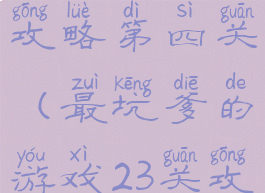 gōng lüè dì sì guān
攻略第四关
zuì kēng diē de
（最坑爹的
yóu xì guān gōng
游戏23关攻